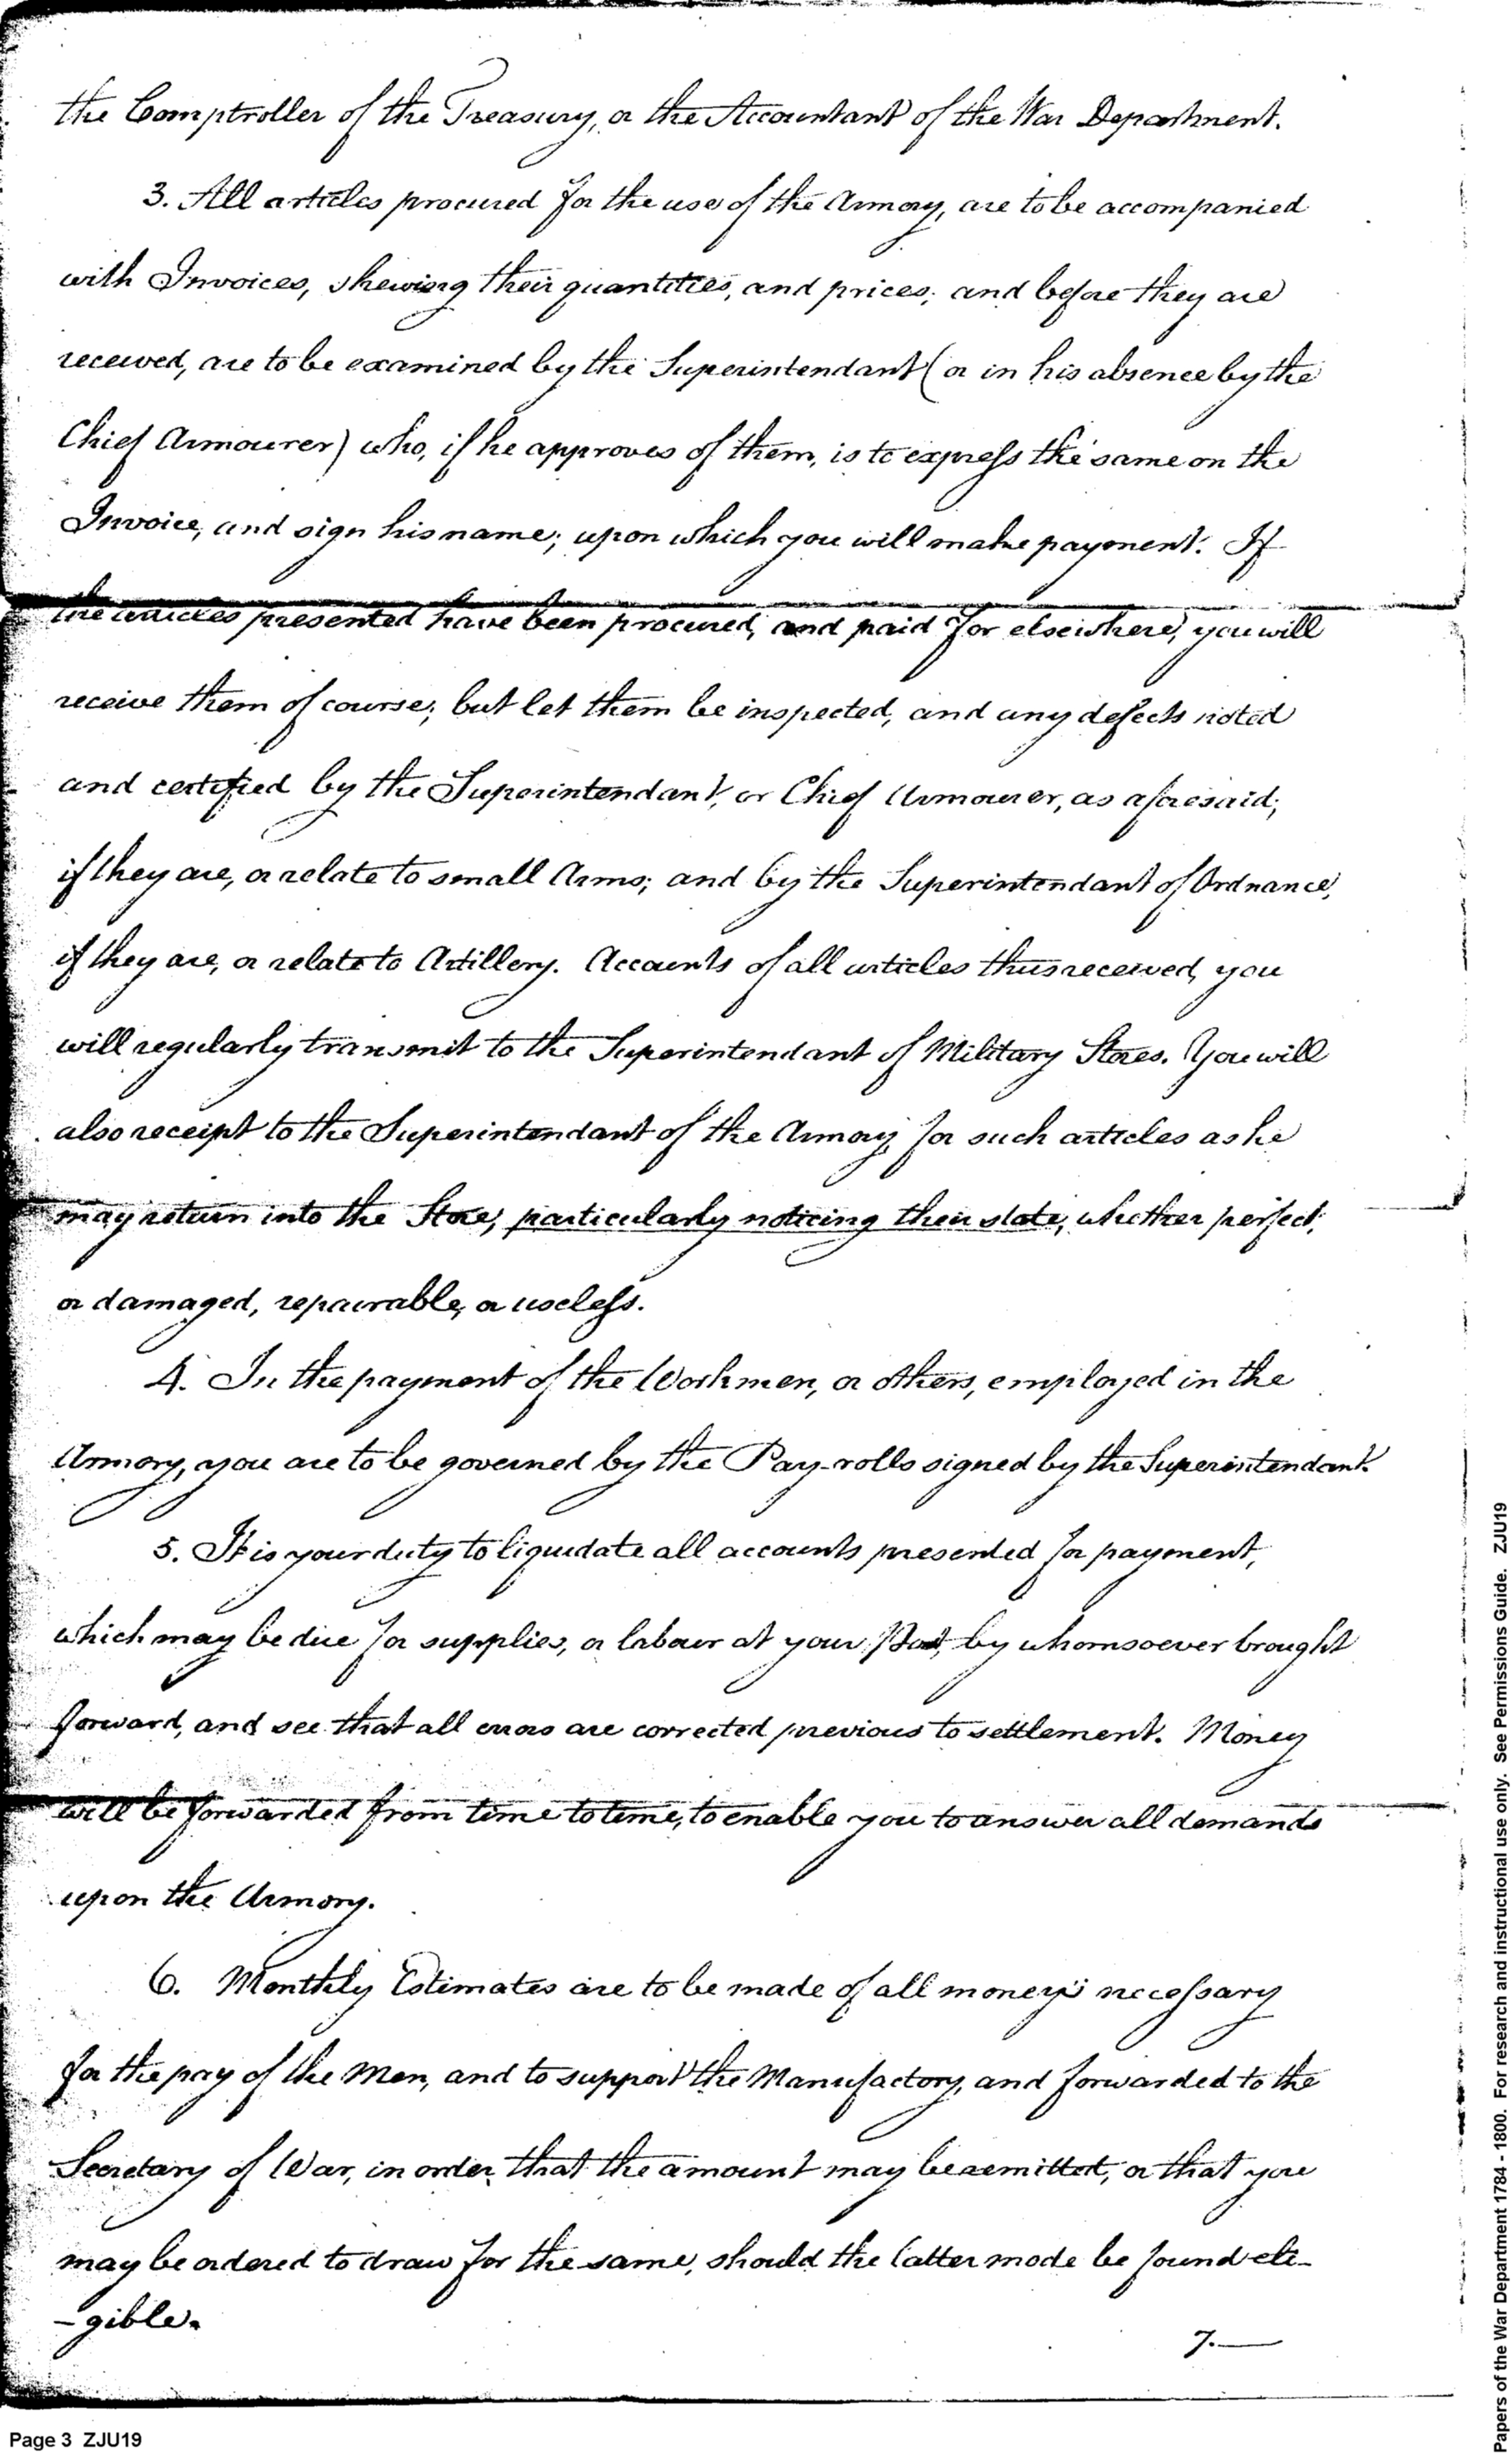 the Comptroller of the Treasury, or the Accountant of the War Department.
3. All articles procured for the use of the Armory, are to be accompanied
with Invoices, shewing their quantities, and prices; and before they are
received, are to be examined by the Superintendant (or in his absence by the
Chief Armourer) who, if he approves of them, is to express the same on the
Invoice, and sign his name; upon which you will make payment. If
the articles presented have been procured, and paid for elsewhere, you will
receive them of course; but let them be inspected, and any defects noted
and certified by the Superintendant, or Chief Armourer, as aforesaid;
if they are, or relate to small Arms; and by the Superintendant of Ordnance,
if they are, or relate to Artillery. Accounts of all articles thus received, you
will regularly transmit to the Superintendant of Military Stores. You will
also receipt to the Superintendant of the Armory, for such articles as he
may return into the Store, particularly noticing their state, whether perfect,
or damaged, repairable, or useless.
4. In the payment of the Workmen, or others, employed in the
Armory, you are to be governed by the Pay-rolls signed by the Superintendant.
5. It is your duty to liquidate all accounts presented for payment,
which may be due for supplies, or labour at your Post, by whomsoever brought
forward, and see that all errors are corrected previous to settlement. Money
will be forwarded from time to time, to enable you to answer all demands
upon the Armory.
6. Monthly Estimates are to be made of all moneys necessary
for the pay of the Men, and to support the Manufactory, and forwarded to the
Secretary of War, in order that the amount may be remitted, or that you
may be ordered to draw for the same, should the latter mode be found eli-
-gible.
7.—
Page 3 ZJU19
Papers of the War Department 1784 - 1800. For research and instructional use only. See Permissions Guide. ZJU19